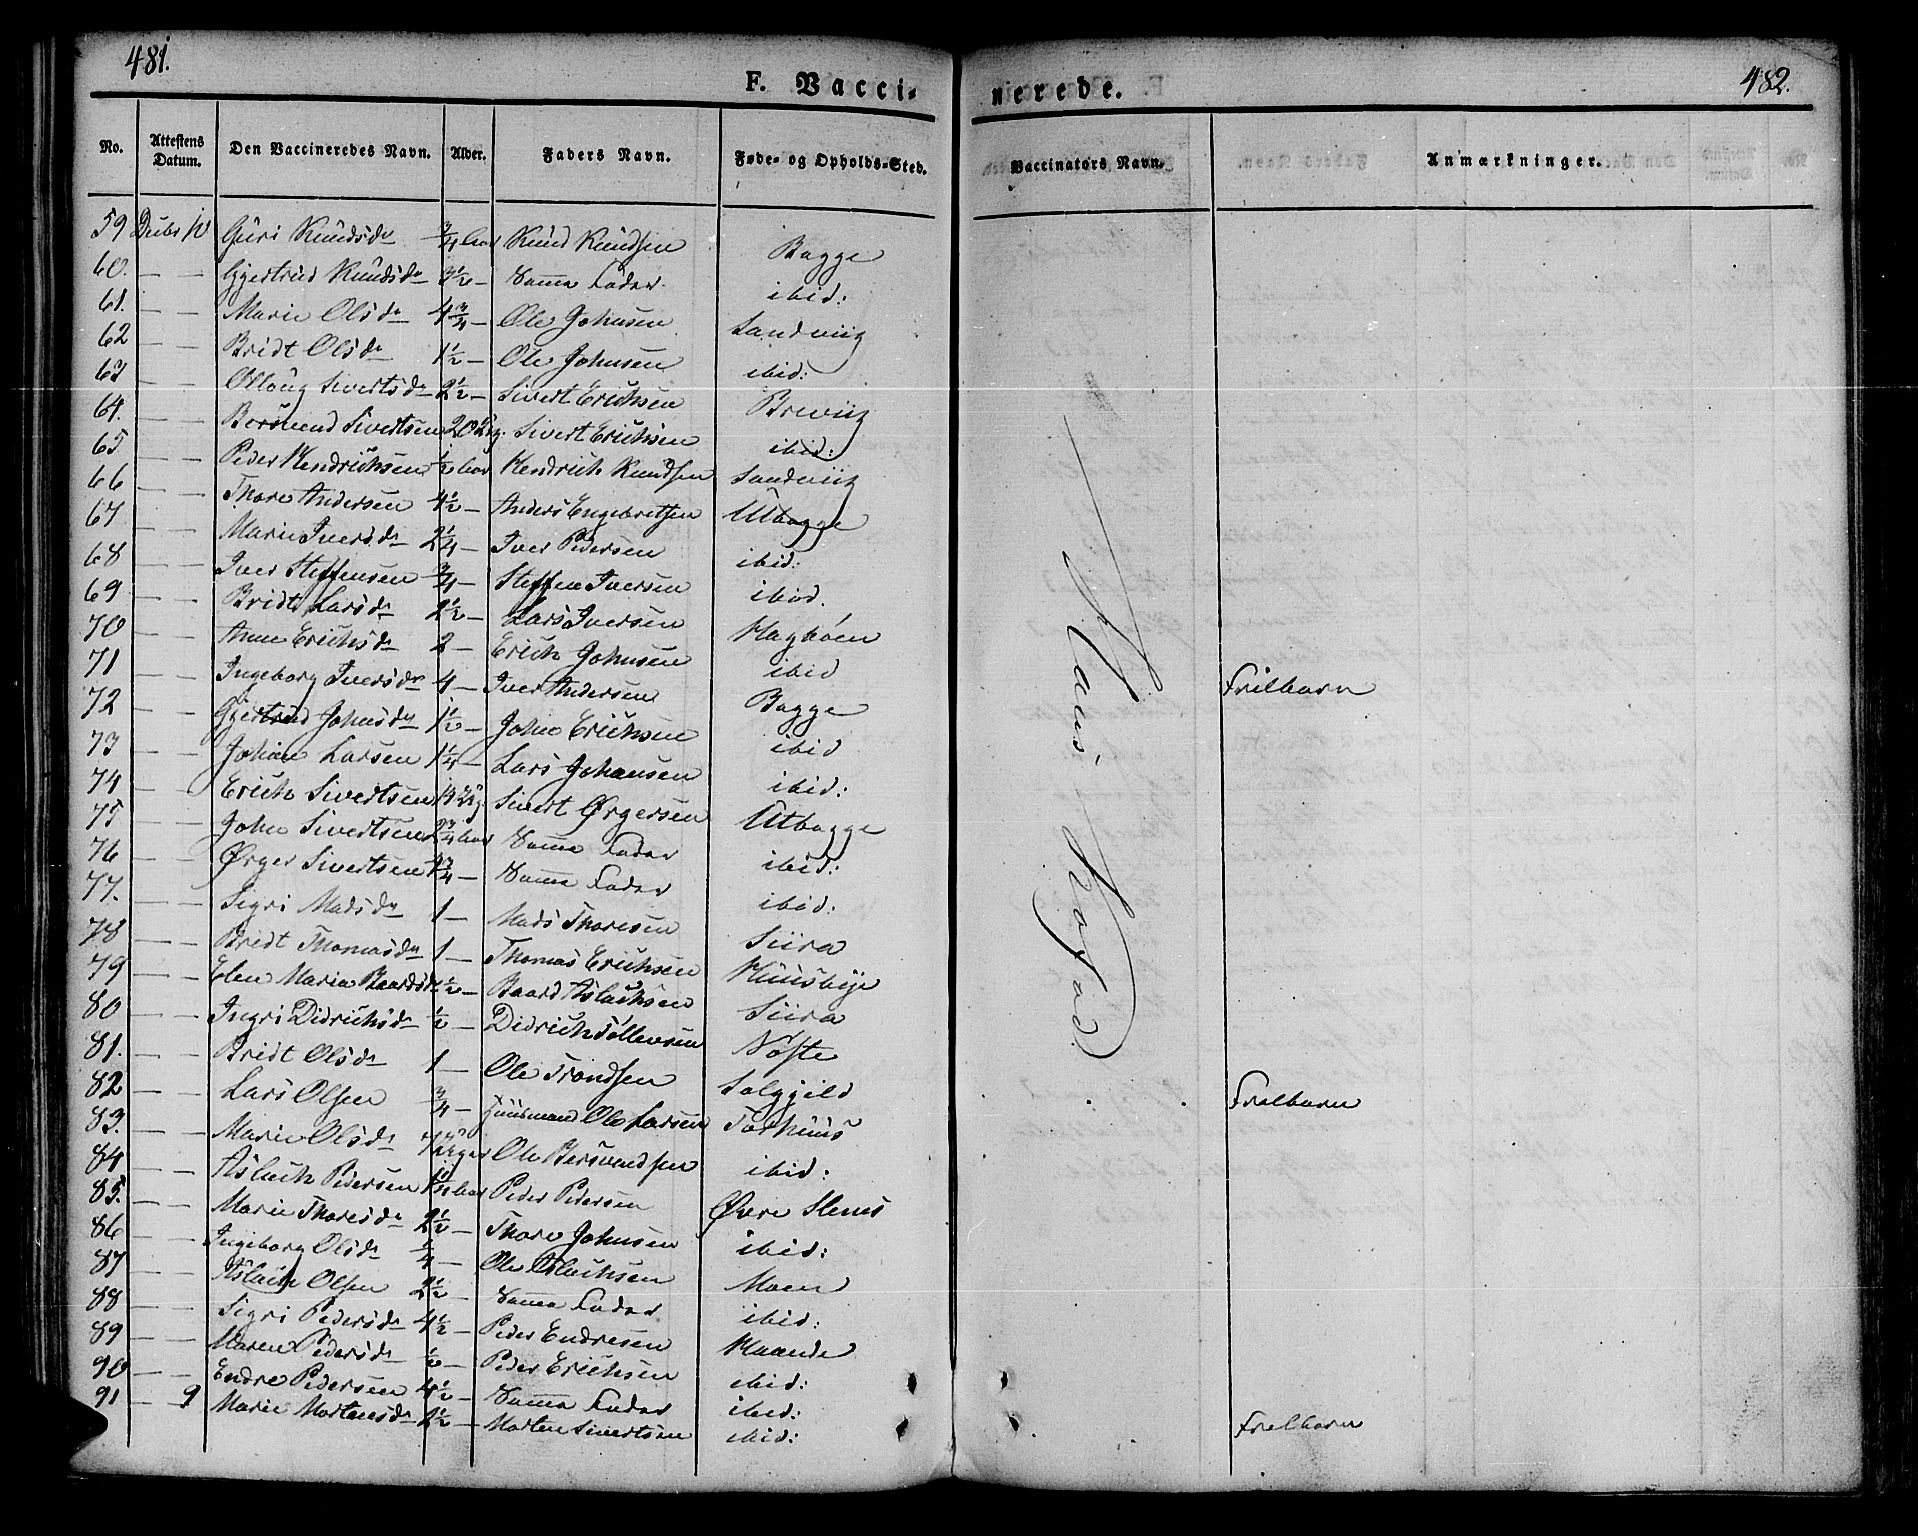 481.
482.
F. Vacci-
nerede.
No.
Attestens Datum.
Den Vaccineredes Navn.
Alder.
Faders Navn.
Føde- og Opholds-Sted.
Vaccinators Navn.
Anmærkninger.
59 Guri Knudsdr 3/4 Knud Knudsen Bagge
60. — — Gjertrud Knudsdr 3 1/2 — Samme Fader. ibid:
61. — — Marie Olsdr 4 3/4 — Ole Johnsen Sandviig
62 — — Bridt Olsdr 1 1/2 — Ole Johnsen ibid:
63 — — Ollaug Sivertsdr 2 1/2 — Sivert Erichsen Breviig
64. — — Bersvend Sivertsen Sivert Erichsen ibid:
65 — — Peder Hendrichsen 1/2 Hendrich Knudsen Sandviig
66 — — Thore Andersen 4 1/2 — Anders Engebretsen Utbagge
67 — — Marie Iversdr 2 1/4 — Iver Pedersen ibid:
68 — — Iver Steffensen 3/4 — Steffen Iversen ibid.
69 — — Bridt Larsdr 2 1/2 — Lars Iversen Hagbøen
70 — — Anne Erichsdr 2 — Erich Johnsen ibid
71 — — Ingeborg Iversdr 4 — Iver Andersen Bagge
72 — — Gjertrud Johnsdr 1 1/2 — John Erichsen ibid
73 — — Johan Larsen 1 1/4 — Lars Johansen ibid:
74 — — Erich Sivertsen Sivert Ørgersen Utbagge
75 — — John Sivertsen 2 3/4 Samme Fader ibid:
76 — — Ørger Sivertsen Samme Fader ibid:
77. — — Sigri Madsdr 1 — Mads Thoresen Siira
78 — — Bridt Thomasdr 1 — Thomas Erichsen Huusbye
79 — — Elen Maria Baardsdr 1/2 — Baard Aslachsen Siira
80 — — Ingri Didrichsdr 1/2 — Didrich Tøllevsen Nøste
81. — — Bridt Olsdr 1 — Ole Trondsen Solgjeld
82 — — Lars Olsen 3/4 — Huusmand Ole Larsen Torhuus
83. — — Marie Olsdr Ole Bersvendsen ibid:
84 — — Aslach Pedersen Peder Pedersen Øvre Stenes
85. — — Marie Thoresdr 2 1/2 — Thore Johnsen ibid:
86 — — Ingeborg Olsdr 1/4 — Ole Aslachsen Moen
87 — — Aslach Olsen 2 1/2 — Samme Fader ibid:
88 — — Sigri Pedersdr 4 1/2 — Peder Endresen Haande
89 — — Maren Pedersdr 1/2 — Peder Erichsen ibid:
90 — — Endre Pedersen 4 1/2 — Samme Fader ibid:
91 — 9 Marie Mortensdr 2 1/2 — Morten Sivertsen ibid:
Hans